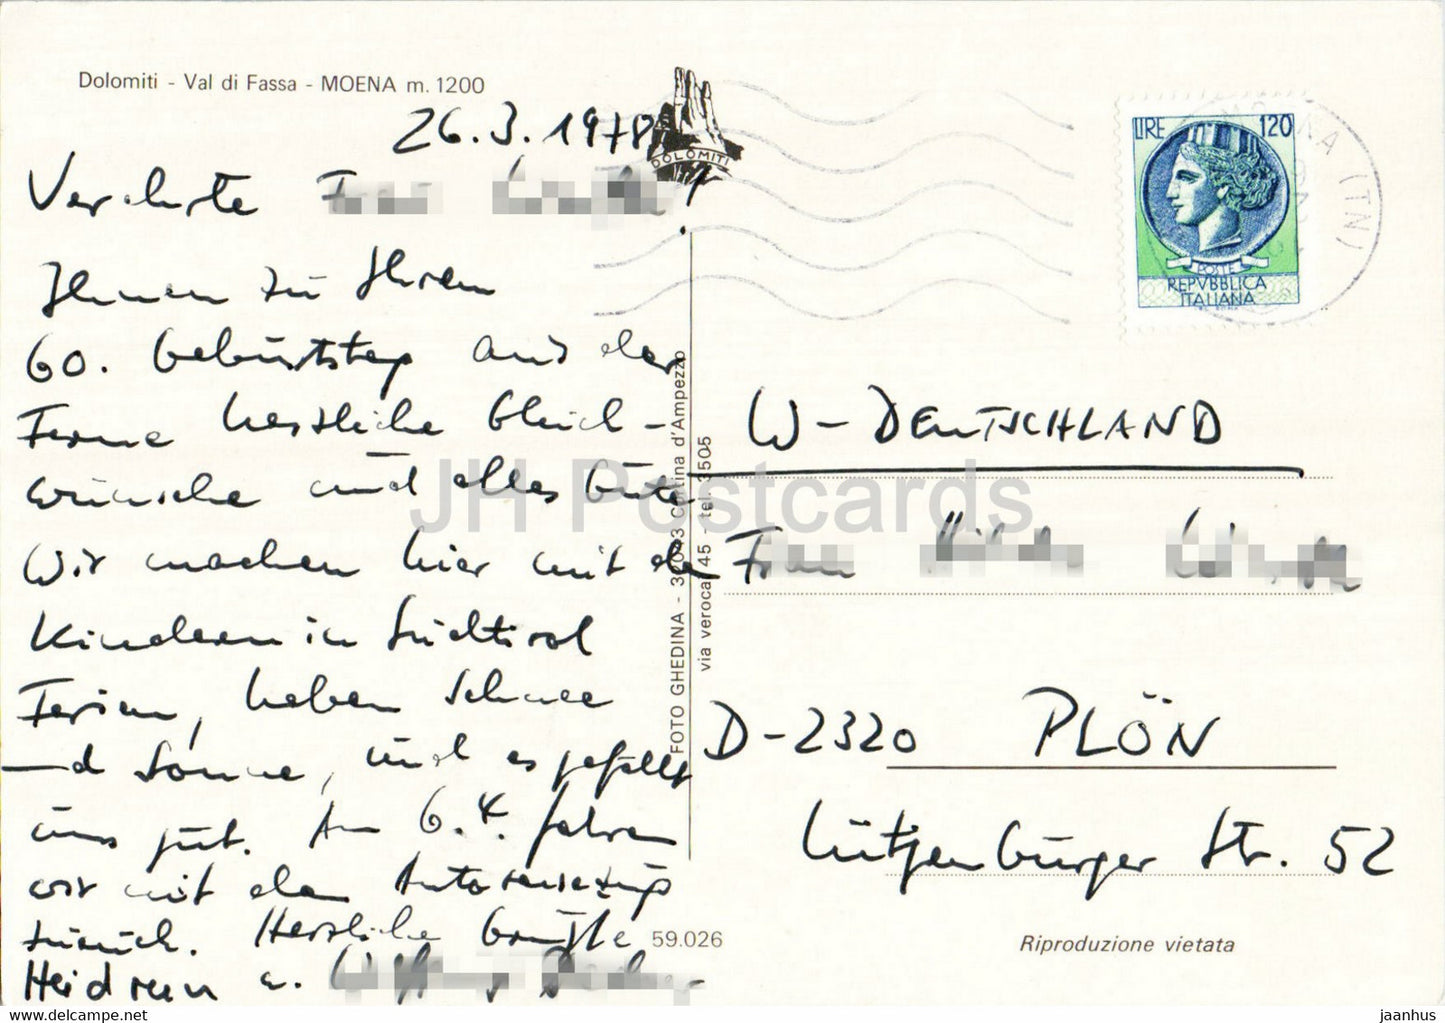 Dolomiti - Val di Fassa - MOENA m. 1200
26.3.1978
DOLOMITI
Verehrte Frau
Ihnen zu Ihrem
60. Geburtstag aus der
Ferne herzliche Glück-
wünsche und alles Gute
Wir machen hier mit den
Kindern in Südtirol
Ferien, haben Schnee
und Sonne, und es gefällt
uns gut. Am 6.4. fahren
wir mit dem Autoreisezug
zurück. Herzliche Grüße
Heidrun u.
59.026
FOTO GHEDINA - Cortina d'Ampezzo
via verocai 45 - tel. 3505
LIRE 120
POSTE
REPVBBLICA
ITALIANA
(TN)
W-DEUTSCHLAND
Frau
D-2320 PLÖN
Lütjenburger Str. 52
Riproduzione vietata
JH Postcards
www.delcampe.net
jaanhus